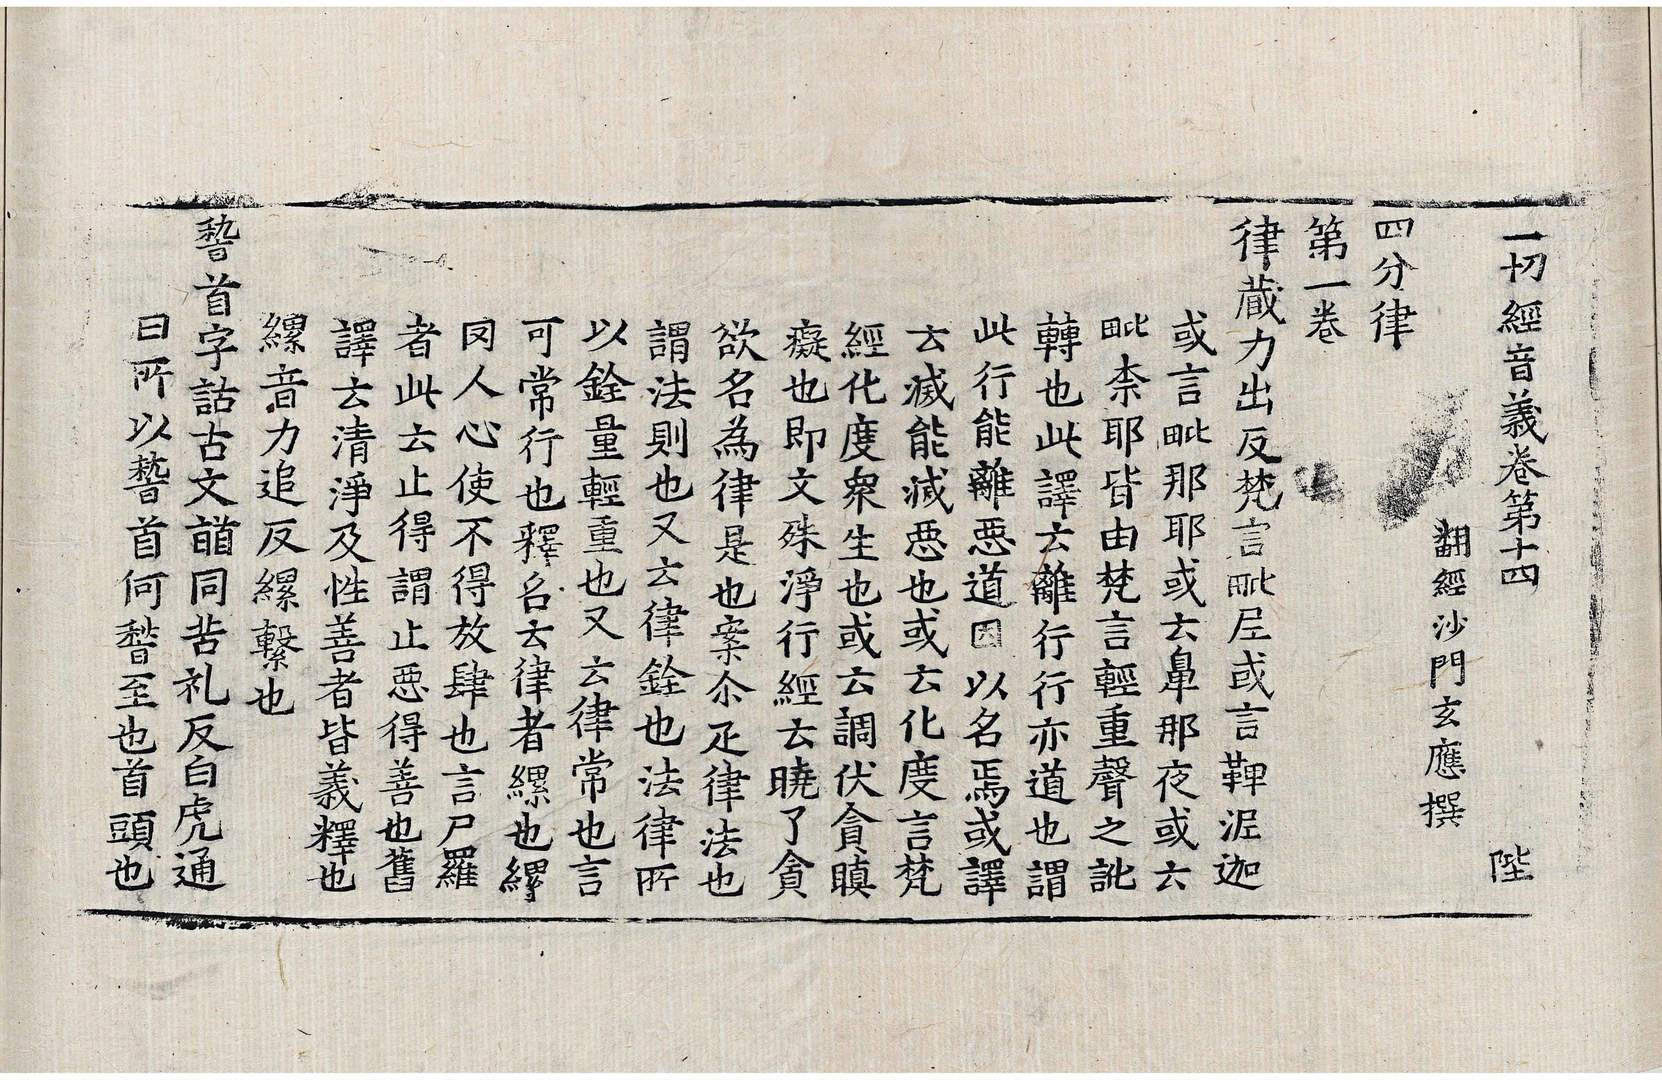 一切經音義卷第十四 陛
翻經沙門玄應撰
四分律
第一卷
律蔵力出反梵言毗尼或言鞞泥迦
或言毗那耶或云鼻那夜或云
毗柰耶皆由梵言輕重聲之訛
轉也此譯云離行行亦道也謂
此行能離惡道因以名焉或譯
云滅能滅惡也或云化度言梵
經化度衆生也或云調伏貪瞋
癡也即文殊淨行經云曉了貪
欲名為律是也案尒疋律法也
謂法則也又云律銓也法律所
以銓量輕重也又云律常也言
可常行也釋名云律者縲也縲
罔人心使不得放肆也言尸羅
者此云止得謂止惡得善也舊
譯云清淨及性善者皆義釋也
縲音力追反縲繫也
䭫首字詁古文𩒨同苦礼反白虎通
曰所以䭫首何䭫至也首頭也